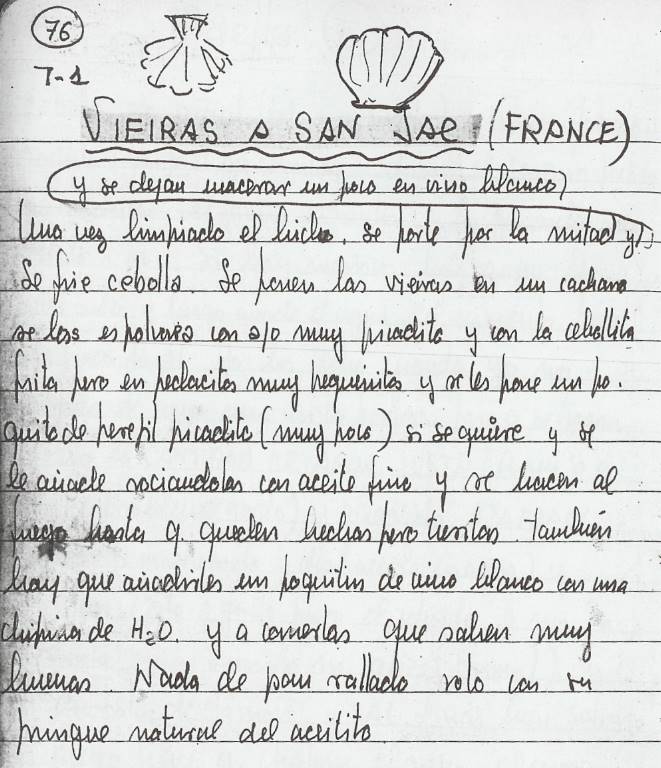 76
T-1
VIEIRAS A SAN JAC (FRANCE)
y se dejan macerar un poco en vino blanco
Una vez limpiado el bicho, se parte por la mitad y
Se frie cebolla. Se ponen las vieiras en un cacharo
se las espolvorea con ajo muy picadito y con la cebollita
frita pero en pedacitos muy pequeñitos y se les pone un po-
quito de perejil picadito (muy poco) si se quiere y se
le añade rociandolas con aceite fino y se hacen al
fuego hasta q. queden hechas pero tiernitas. También
hay que añadirles un poquitin de vino blanco con una
chipina de H2O. y a comerlas que saben muy
buenas. Nada de pan rallado solo con su
pringue natural del aceitito